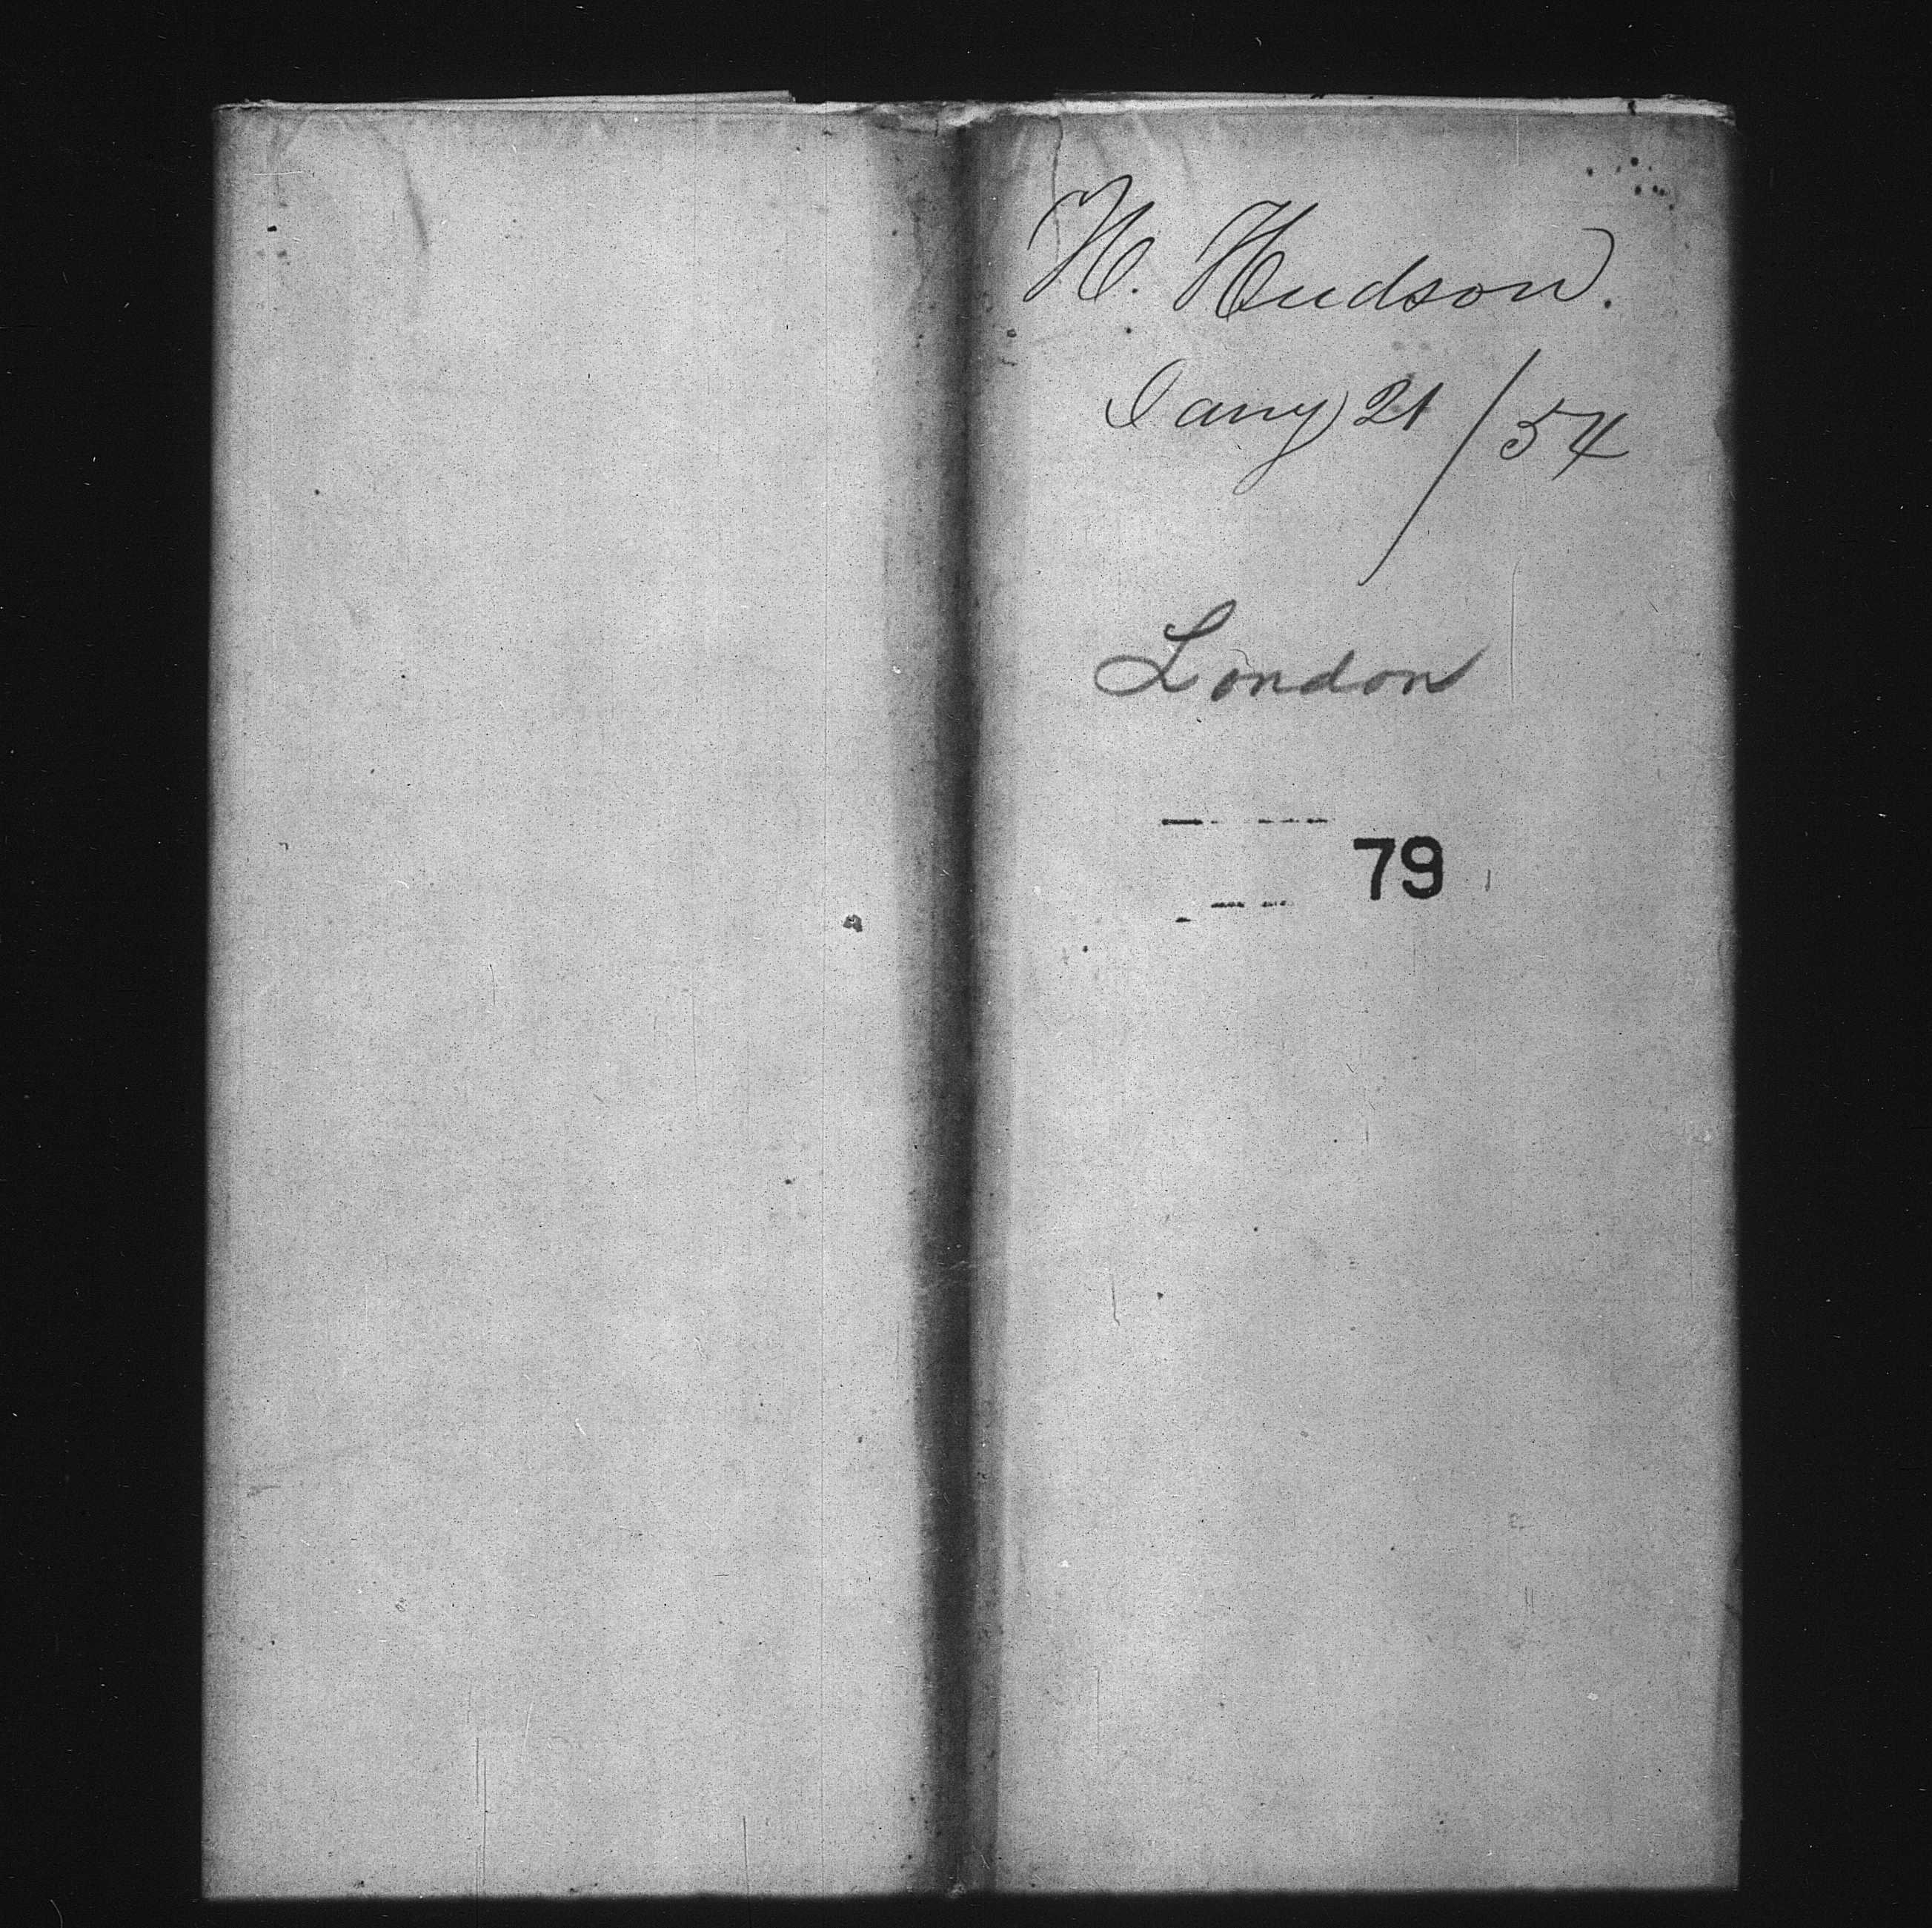 H. Hudson.
Jany 21/54
London
79